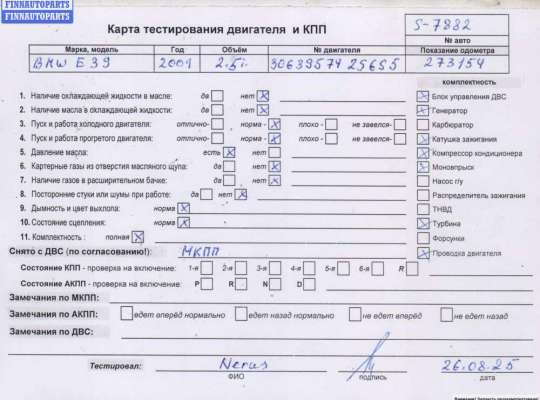 FINNAUTOPARTS
FINNAUTOPARTS
Карта тестирования двигателя и КПП
S-7882
№ авто
Марка, модель Год Объём № двигателя Показание одометра
BMW E39 2001 2.5i 30639574 256S5 273154
комплектность
1. Наличие охлаждающей жидкости в масле: да нет Блок управления ДВС
2. Наличие масла в охлаждающей жидкости: да нет Генератор
3. Пуск и работа холодного двигателя: отлично- норма - плохо - не завелся- Карбюратор
4. Пуск и работа прогретого двигателя: отлично- норма - плохо - не завелся- Катушка зажигания
5. Давление масла: есть нет Компрессор кондиционера
6. Картерные газы из отверстия масляного щупа: да нет Моновпрыск
7. Наличие газов в расширительном бачке: да нет Насос г/у
8. Посторонние стуки или шумы при работе: да нет Распределитель зажигания
9. Дымность и цвет выхлопа: норма ТНВД
10.Состояние сцепления: норма Турбина
11. Комплектность : полная Форсунки
Снято с ДВС (по согласованию!): МКПП Проводка двигателя
Состояние КПП - проверка на включение: 1-я 2-я 3-я 4-я 5-я 6-я R
Состояние АКПП - проверка на включение: P R N D
Замечания по МКПП:
Замечания по АКПП: едет вперёд нормально едет назад нормально не едет вперёд не едет назад
Замечания по ДВС:
Тестировал: Nerus 26.08.25
ФИО подпись дата